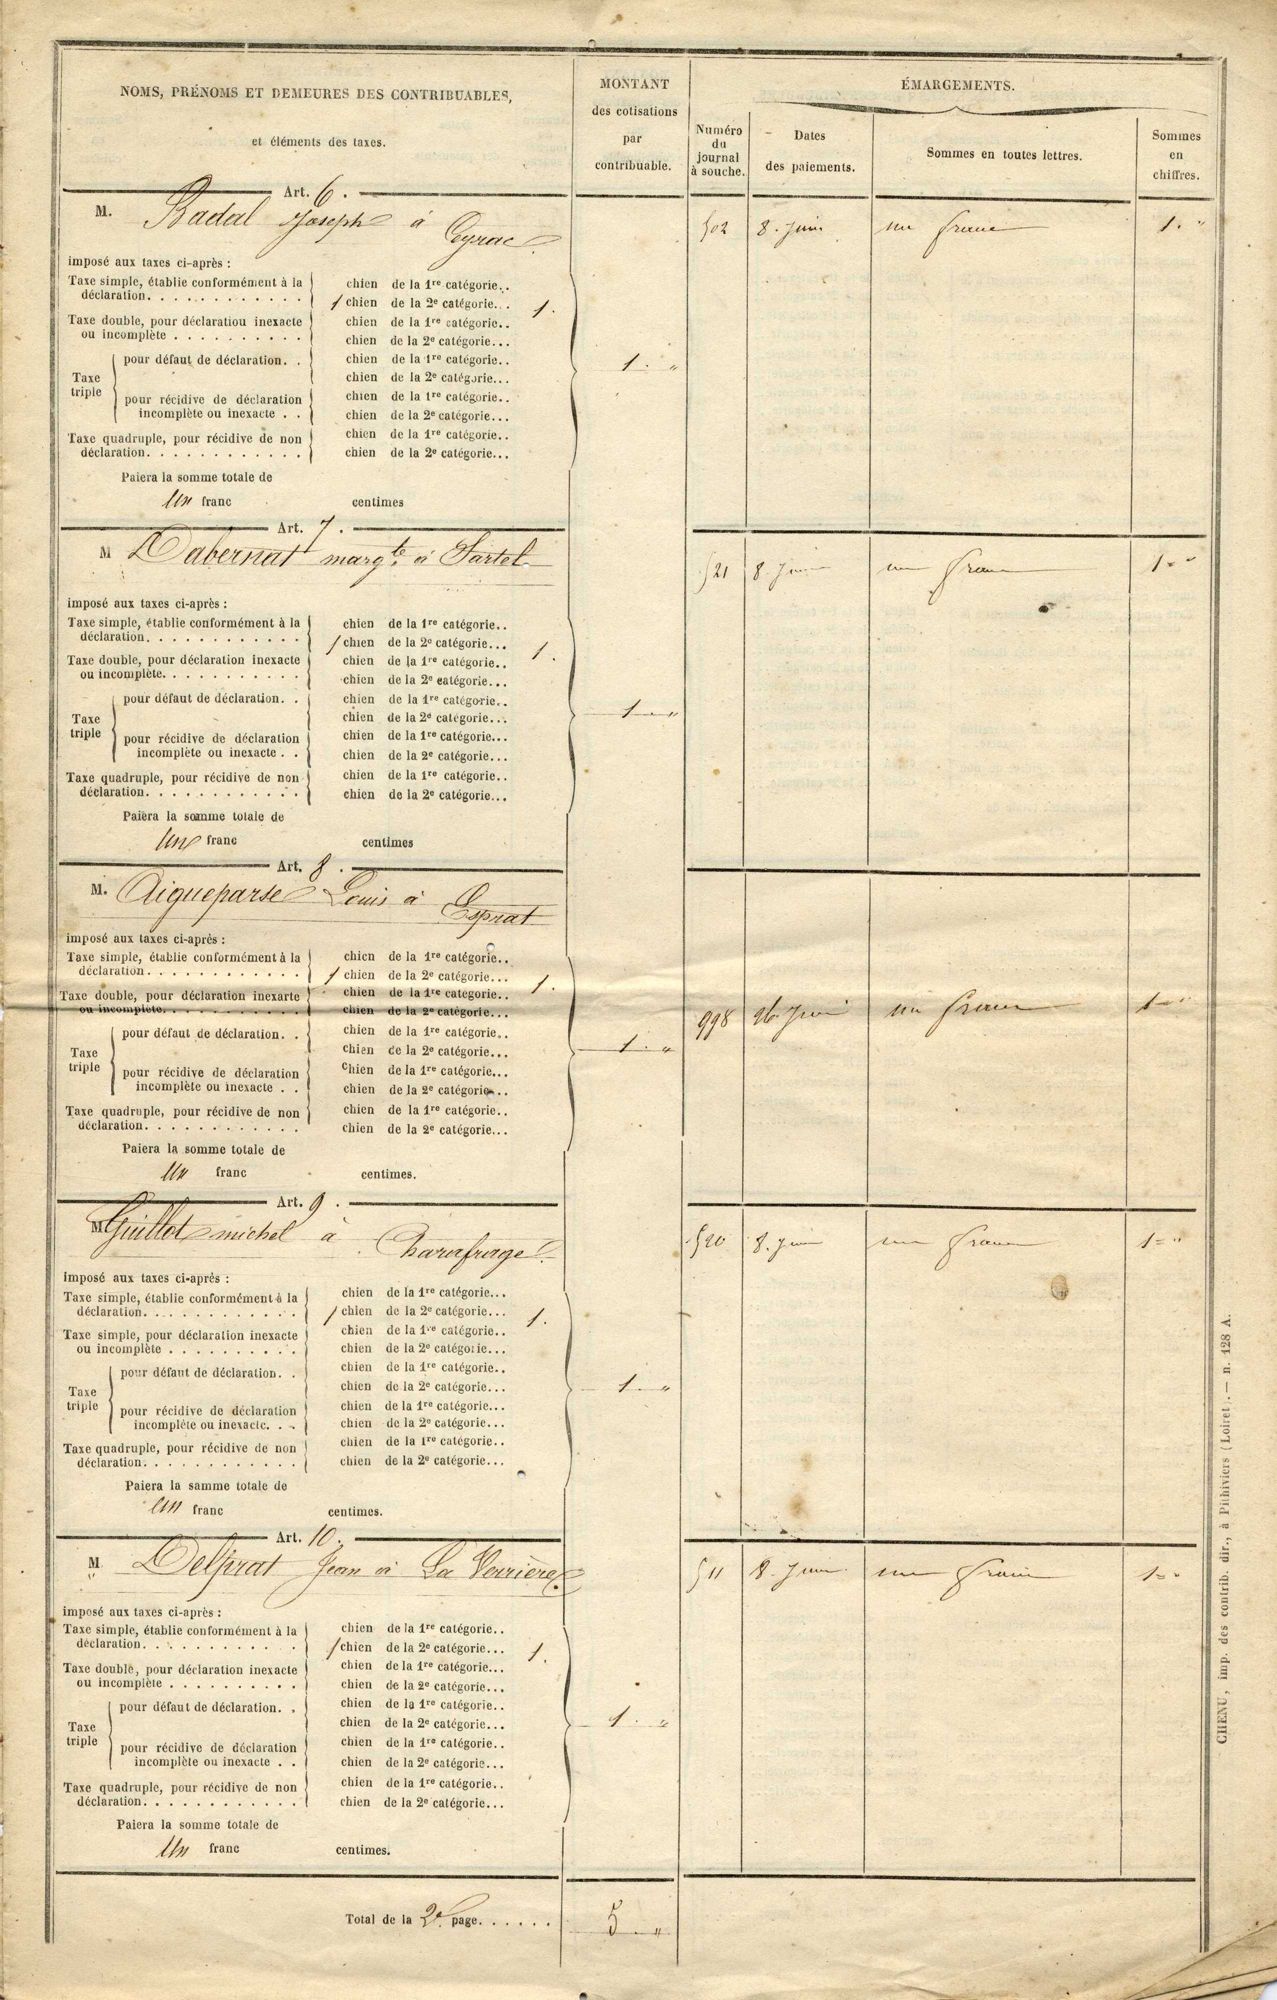 NOMS, PRÉNOMS ET DEMEURES DES CONTRIBUABLES,
et éléments des taxes.
MONTANT
des cotisations
par
contribuable.
ÉMARGEMENTS.
Numéro
du
journal
à souche.
Dates
des paiements.
Sommes en toutes lettres.
Sommes
en
chiffres.
Art. 6.
M. Badal Joseph à Ceyrac
502 8. Juin un franc 1. "
imposé aux taxes ci-après :
Taxe simple, établie conformément à la
déclaration. . . . . . . . . . . .
chien de la 1re catégorie..
1 chien de la 2e catégorie... 1.
Taxe double, pour déclaratiou inexacte
ou incomplète . . . . . . . . . .
chien de la 1re catégorie..
chien de la 2e catégorie...
Taxe
triple
pour défaut de déclaration. .
chien de la 1re catégorie..
chien de la 2e catégorie...
1. "
pour récidive de déclaration
incomplète ou inexacte . .
chien de la 1re catégorie..
chien de la 2e catégorie...
Taxe quadruple, pour récidive de non
déclaration. . . . . . . . . . . .
chien de la 1re catégorie..
chien de la 2e catégorie...
Paiera la somme totale de
Un franc centimes
Art. 7.
M Dabernat margte à Sartel
521 8. Juin un franc 1. "
imposé aux taxes ci-après :
Taxe simple, établie conformément à la
déclaration. . . . . . . . . . . .
chien de la 1re catégorie..
1 chien de la 2e catégorie... 1.
Taxe double, pour déclaration inexacte
ou incomplète. . . . . . . . . . .
chien de la 1re catégorie..
chien de la 2e eatégorie...
Taxe
triple
pour défaut de déclaration. .
chien de la 1re catégorie..
chien de la 2e catégorie...
1. "
pour récidive de déclaration
incomplète ou inexacte . .
chien de la 1re catégorie...
chien de la 2e catégorie...
Taxe quadruple, pour récidive de non
déclaration. . . . . . . . . . . .
chien de la 1re catégorie..
chien de la 2e catégorie...
Paiera la somme totale de
Un franc centimes
Art. 8.
M. Aigueparse Louis à Esprat
imposé aux taxes ci-après :
Taxe simple, établie conformément à la
déclaration. . . . . . . . . . . .
chien de la 1re catégorie..
1 chien de la 2e catégorie... 1.
Taxe double, pour déclaration inexarte
ou incomplète. . . . . . . . . . .
chien de la 1re catégorie..
chien de la 2e catégorie...
998 26 Juin un franc 1. "
Taxe
triple
pour défaut de déclaration. .
chien de la 1re catégorie..
chien de la 2e catégorie...
1. "
pour récidive de déclaration
incomplète ou inexacte . .
chien de la 1re catégorie...
chien de la 2e catégorie...
Taxe quadruple, pour récidive de non
déclaration. . . . . . . . . . . .
chien de la 1re catégorie..
chien de la 2e catégorie...
Paiera la somme totale de
Un franc centimes.
Art. 9.
M Guillot michel à
520 8. Juin un franc 1. "
imposé aux taxes ci-après :
Taxe simple, établie conformément à la
déclaration. . . . . . . . . . . .
chien de la 1re catégorie...
1 chien de la 2e catégorie... 1.
Taxe simple, pour déclaration inexacte
ou incomplète . . . . . . . . . .
chien de la 1re catégorie..
chien de la 2e catégorie...
Taxe
triple
pour défaut de déclaration. .
chien de la 1re catégorie..
chien de la 2e catégorie...
1. "
pour récidive de déclaration
incomplète ou inexacte. . .
chien de la 1re catégorie...
chien de la 2e catégorie...
Taxe quadruple, pour récidive de non
déclaration. . . . . . . . . . . .
chien de la 1re catégorie..
chien de la 2e catégorie...
Paiera la samme totale de
Un franc centimes.
Art. 10.
M Delprat Jean à La Verrière
511 8. Juin un franc 1. "
imposé aux taxes ci-après :
Taxe simple, établie conformément à la
déclaration. . . . . . . . . . . .
chien de la 1re catégorie..
1 chien de la 2e catégorie... 1.
Taxe double, pour déclaration inexacte
ou incomplète . . . . . . . . . .
chien de la 1re catégorie...
chien de la 2e catégorie...
Taxe
triple
pour défaut de déclaration. .
chien de la 1re catégorie..
chien de la 2e catégorie...
1. "
pour récidive de déclaration
incomplète ou inexacte . .
chien de la 1re catégorie...
chien de la 2e catégorie...
Taxe quadruple, pour récidive de non
déclaration. . . . . . . . . . . .
chien de la 1re catégorie..
chien de la 2e catégorie...
Paiera la somme totale de
Un franc centimes.
Total de la 2e page. . . . . . 5 "
CHENU, imp. des contrib. dir., à Pithiviers (Loiret). — n. 128 A.